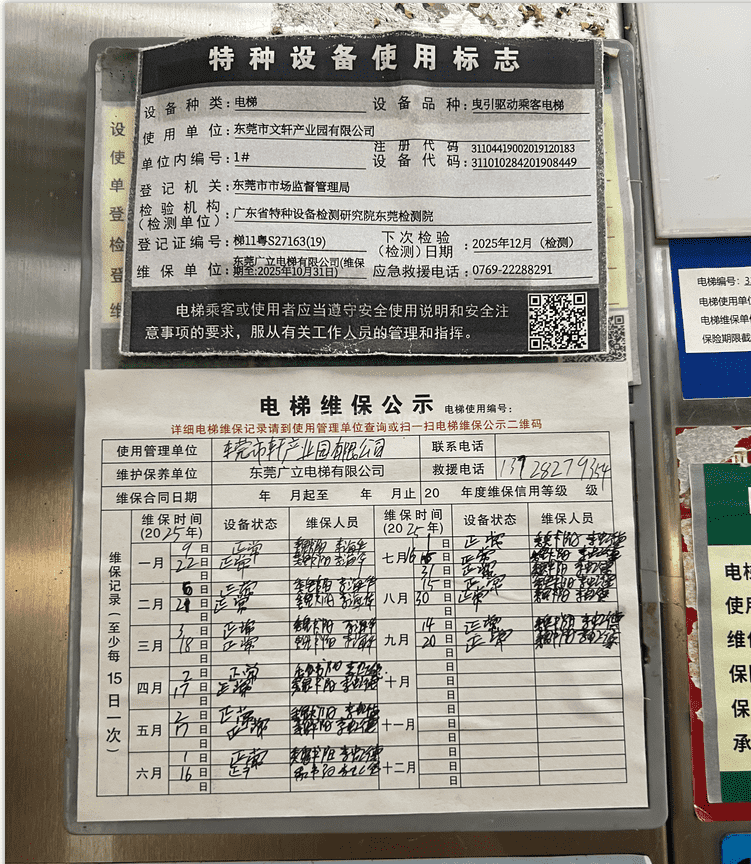 特种设备使用标志
设备种类：电梯 设备品种：曳引驱动乘客电梯
使用单位：东莞市文轩产业园有限公司
单位内编号：1# 注册代码 31104419002019120183
设备代码：311010284201908449
登记机关：东莞市市场监督管理局
检验机构（检测单位）：广东省特种设备检测研究院东莞检测院
登记证编号：梯11粤S27163(19) 下次检验（检测）日期：2025年12月（检测）
维保单位：东莞广立电梯有限公司(维保期至:2025年10月31日) 应急救援电话：0769-22288291
电梯乘客或使用者应当遵守安全使用说明和安全注
意事项的要求，服从有关工作人员的管理和指挥。
设
使
单
登
检
登
维
电梯维保公示 电梯使用编号：
详细电梯维保记录请到使用管理单位查询或扫一扫电梯维保公示二维码
使用管理单位 东莞市轩产业园有限公司 联系电话
维护保养单位 东莞广立电梯有限公司 救援电话
维保合同日期 年 月起至 年 月止 20 年度维保信用等级 级
维保时间（2025年） 设备状态 维保人员 维保时间（2025年） 设备状态 维保人员
维保记录（至少每15日一次）
一月 9日 正常 七月 1日 正常
22日 正常 16日 正常
日 31日 正常
二月 6日 正常 八月 15日 正常
21日 正常 30日 正常
日 日
三月 3日 正常 九月 14日 正常
18日 正常 20日 正常
日 日
四月 2日 正常 十月 日
17日 正常 日
日 日
五月 2日 正常 十一月 日
17日 正常 日
日 日
六月 1日 正常 十二月 日
16日 正常 日
日 日
电梯编号：3
电梯使用单位
电梯维保单
保险期限截
电梯
使用
维保
保险
保
承